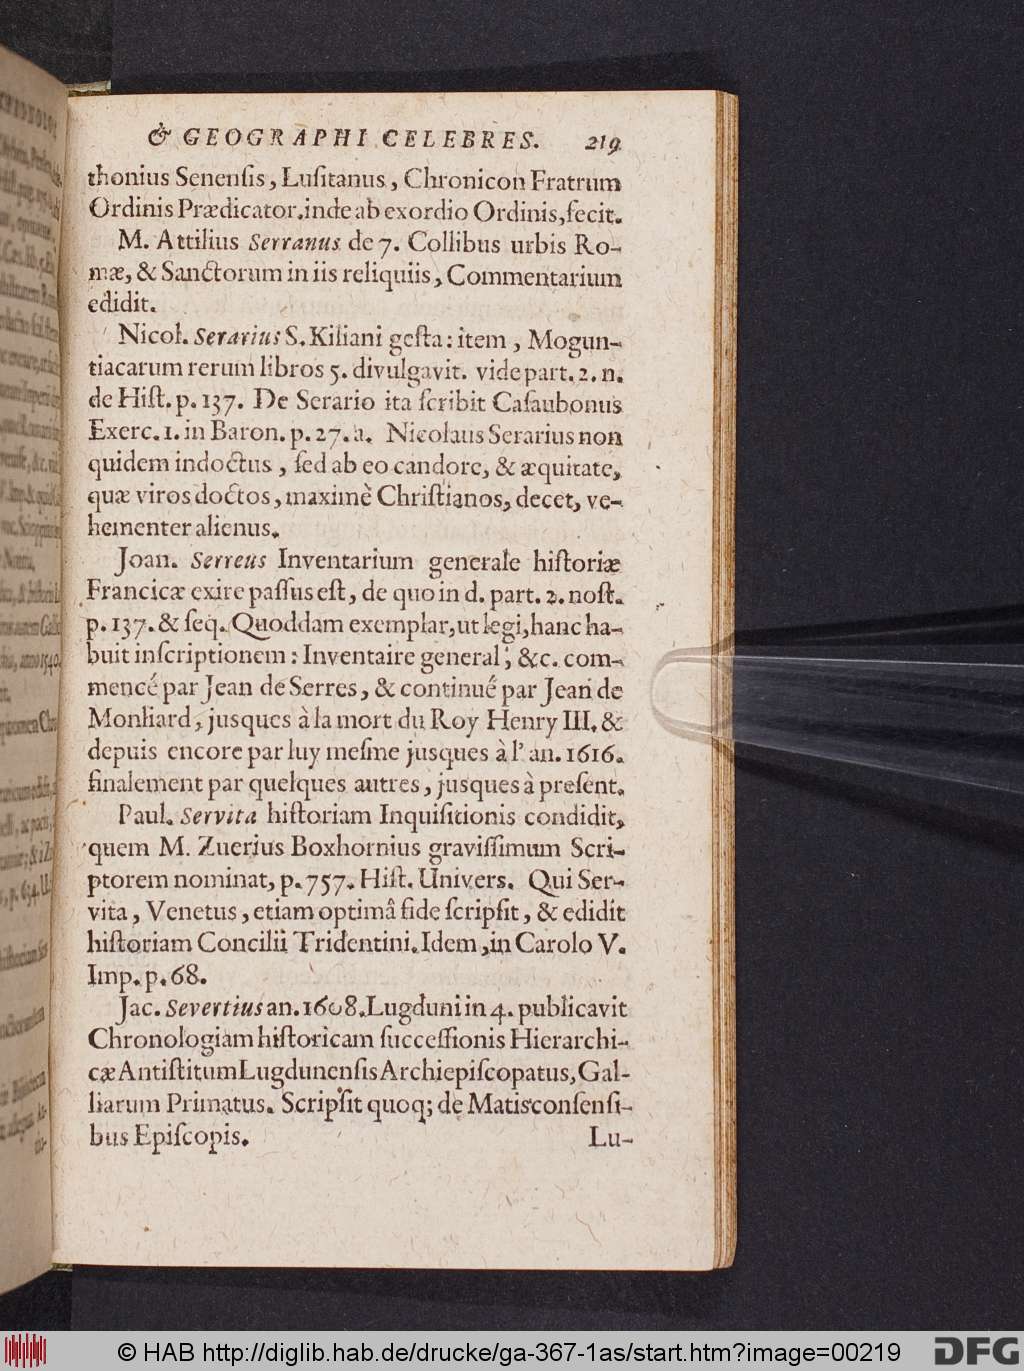 & GEOGRAPHI CELEBRES. 219
thonius Senenſis, Luſitanus, Chronicon Fratrum
Ordinis Prædicator. inde ab exordio Ordinis, fecit.
M. Attilius Serranus de 7. Collibus urbis Ro-
mæ, & Sanctorum in iis reliquiis, Commentarium
edidit.
Nicol. Serarius S. Kiliani geſta: item, Mogun-
tiacarum rerum libros 5. divulgavit. vide part. 2. n.
de Hiſt. p. 137. De Serario ita ſcribit Caſaubonus
Exerc. 1. in Baron. p. 27. a. Nicolaus Serarius non
quidem indoctus, ſed ab eo candore, & æquitate,
quæ viros doctos, maximè Chriſtianos, decet, ve-
hementer alienus.
Joan. Serreus Inventarium generale hiſtoriæ
Francicæ exire paſſus eſt, de quo in d. part. 2. noſt.
p. 137. & ſeq. Quoddam exemplar, ut legi, hanc ha-
buit inſcriptionem: Inventaire general, &c. com-
mencé par Jean de Serres, & continué par Jean de
Monliard, jusques à la mort du Roy Henry III. &
depuis encore par luy meſme jusques à l' an. 1616.
finalement par quelques autres, jusques à preſent.
Paul. Servita hiſtoriam Inquiſitionis condidit,
quem M. Zuerius Boxhornius graviſſimum Scri-
ptorem nominat, p. 757. Hiſt. Univers. Qui Ser-
vita, Venetus, etiam optimâ fide ſcripſit, & edidit
hiſtoriam Concilii Tridentini. Idem, in Carolo V.
Imp. p. 68.
Jac. Severtius an. 1608. Lugduni in 4. publicavit
Chronologiam hiſtoricam ſucceſſionis Hierarchi-
cæ Antiſtitum Lugdunenſis Archiepiſcopatus, Gal-
liarum Primatus. Scripſit quoq; de Matisconſenſi-
bus Epiſcopis. Lu-
© HAB http://diglib.hab.de/drucke/ga-367-1as/start.htm?image=00219
DFG